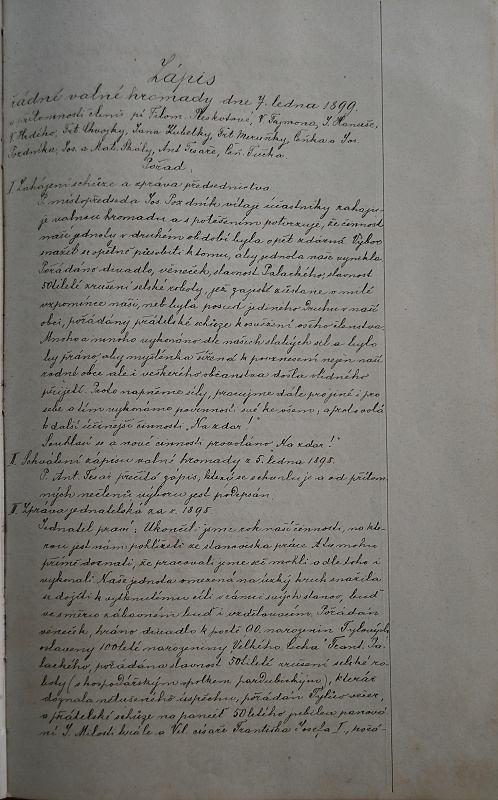 Zápis
řádné valné hromady dne 7. ledna 1899.
v přítomnosti členů pí Filom. Pleskotové, V. Tajmona, J. Hanuše,
V. Hrdého, Fr. Chvojky, Jana Kubelky, Fr. Meruňky, Čeňka a Jos.
Pozdníka, Jos. a Mat. Skály, Ant. Tesaře, Čeň. Tucha.
Pořad.
I. Zahájení schůze a zpráva předsednictva
P. místopředseda Jos. Pozdník vítaje účastníky zahaju-
je valnou hromadu a s potěšením potvrzuje, že činnost
naší jednoty v druhém období byla opět zdárná. Výbor
snažil se opětně působiti k tomu, aby jednota naše vynikla.
Pořádáno divadlo, věneček, slavnost Palackého, slavnost
50tileté zrušení selské roboty, jež zajisté zůstane v milé
vzpomínce naší, neb byla posud jediného druhu v naší
obci, pořádány přátelské schůze k souzení svého členstva.
Mnoho a mnoho vykonáno dle našich slabých sil a bylo
by přáno, aby myšlenka šířená k povznesení nejen naší
rodné obce ale i veškerého občanstva došla vlídného
přijetí. Proto napněme síly, pracujme dále pro jiné i pro
sebe a tím vykonáme povinnosti své ke všem; a proto volá
k další účinější činnosti „Na zdar!"
Souhlasí se a nové činnosti provoláno „Na zdar!"
II. Schválení zápisu valné hromady z 5. ledna 1898.
P. Ant. Tesař přečítá zápis, který se schvaluje a od přítom-
ných nečlenů výboru jest podepsán.
III. Zpráva jednatelská za r. 1898.
Jednatel praví: Ukončili jsme rok naší činnosti, na kte-
rou jest nám pohlížeti ze stanoviska práce. A tu mohu
přímě doznati, že pracovali jsme seč mohli a dle toho i
vykonali. Naše jednota omezená na úzký kruh snažila
se dojíti k vytknutému cíli v rámci svých stanov, buď
ve směru zábavném buď i vzdělávacím. Pořádán
věneček, hráno divadlo k poctě 90. narozenin Tylových,
oslaveny 100leté narozeniny „Velkého Čecha" Frant. Pa-
lackého, pořádána slavnost 50tileté zrušení selské ro-
boty (s hospodářským spolkem pardubickým), která
doznala netušeného úspěchu, pořádán Tylův večer,
a přátelské schůze na paměť 50letého jubilea panová-
ní J. Milosti krále a Vel. císaře Františka Josefa I., pořá-